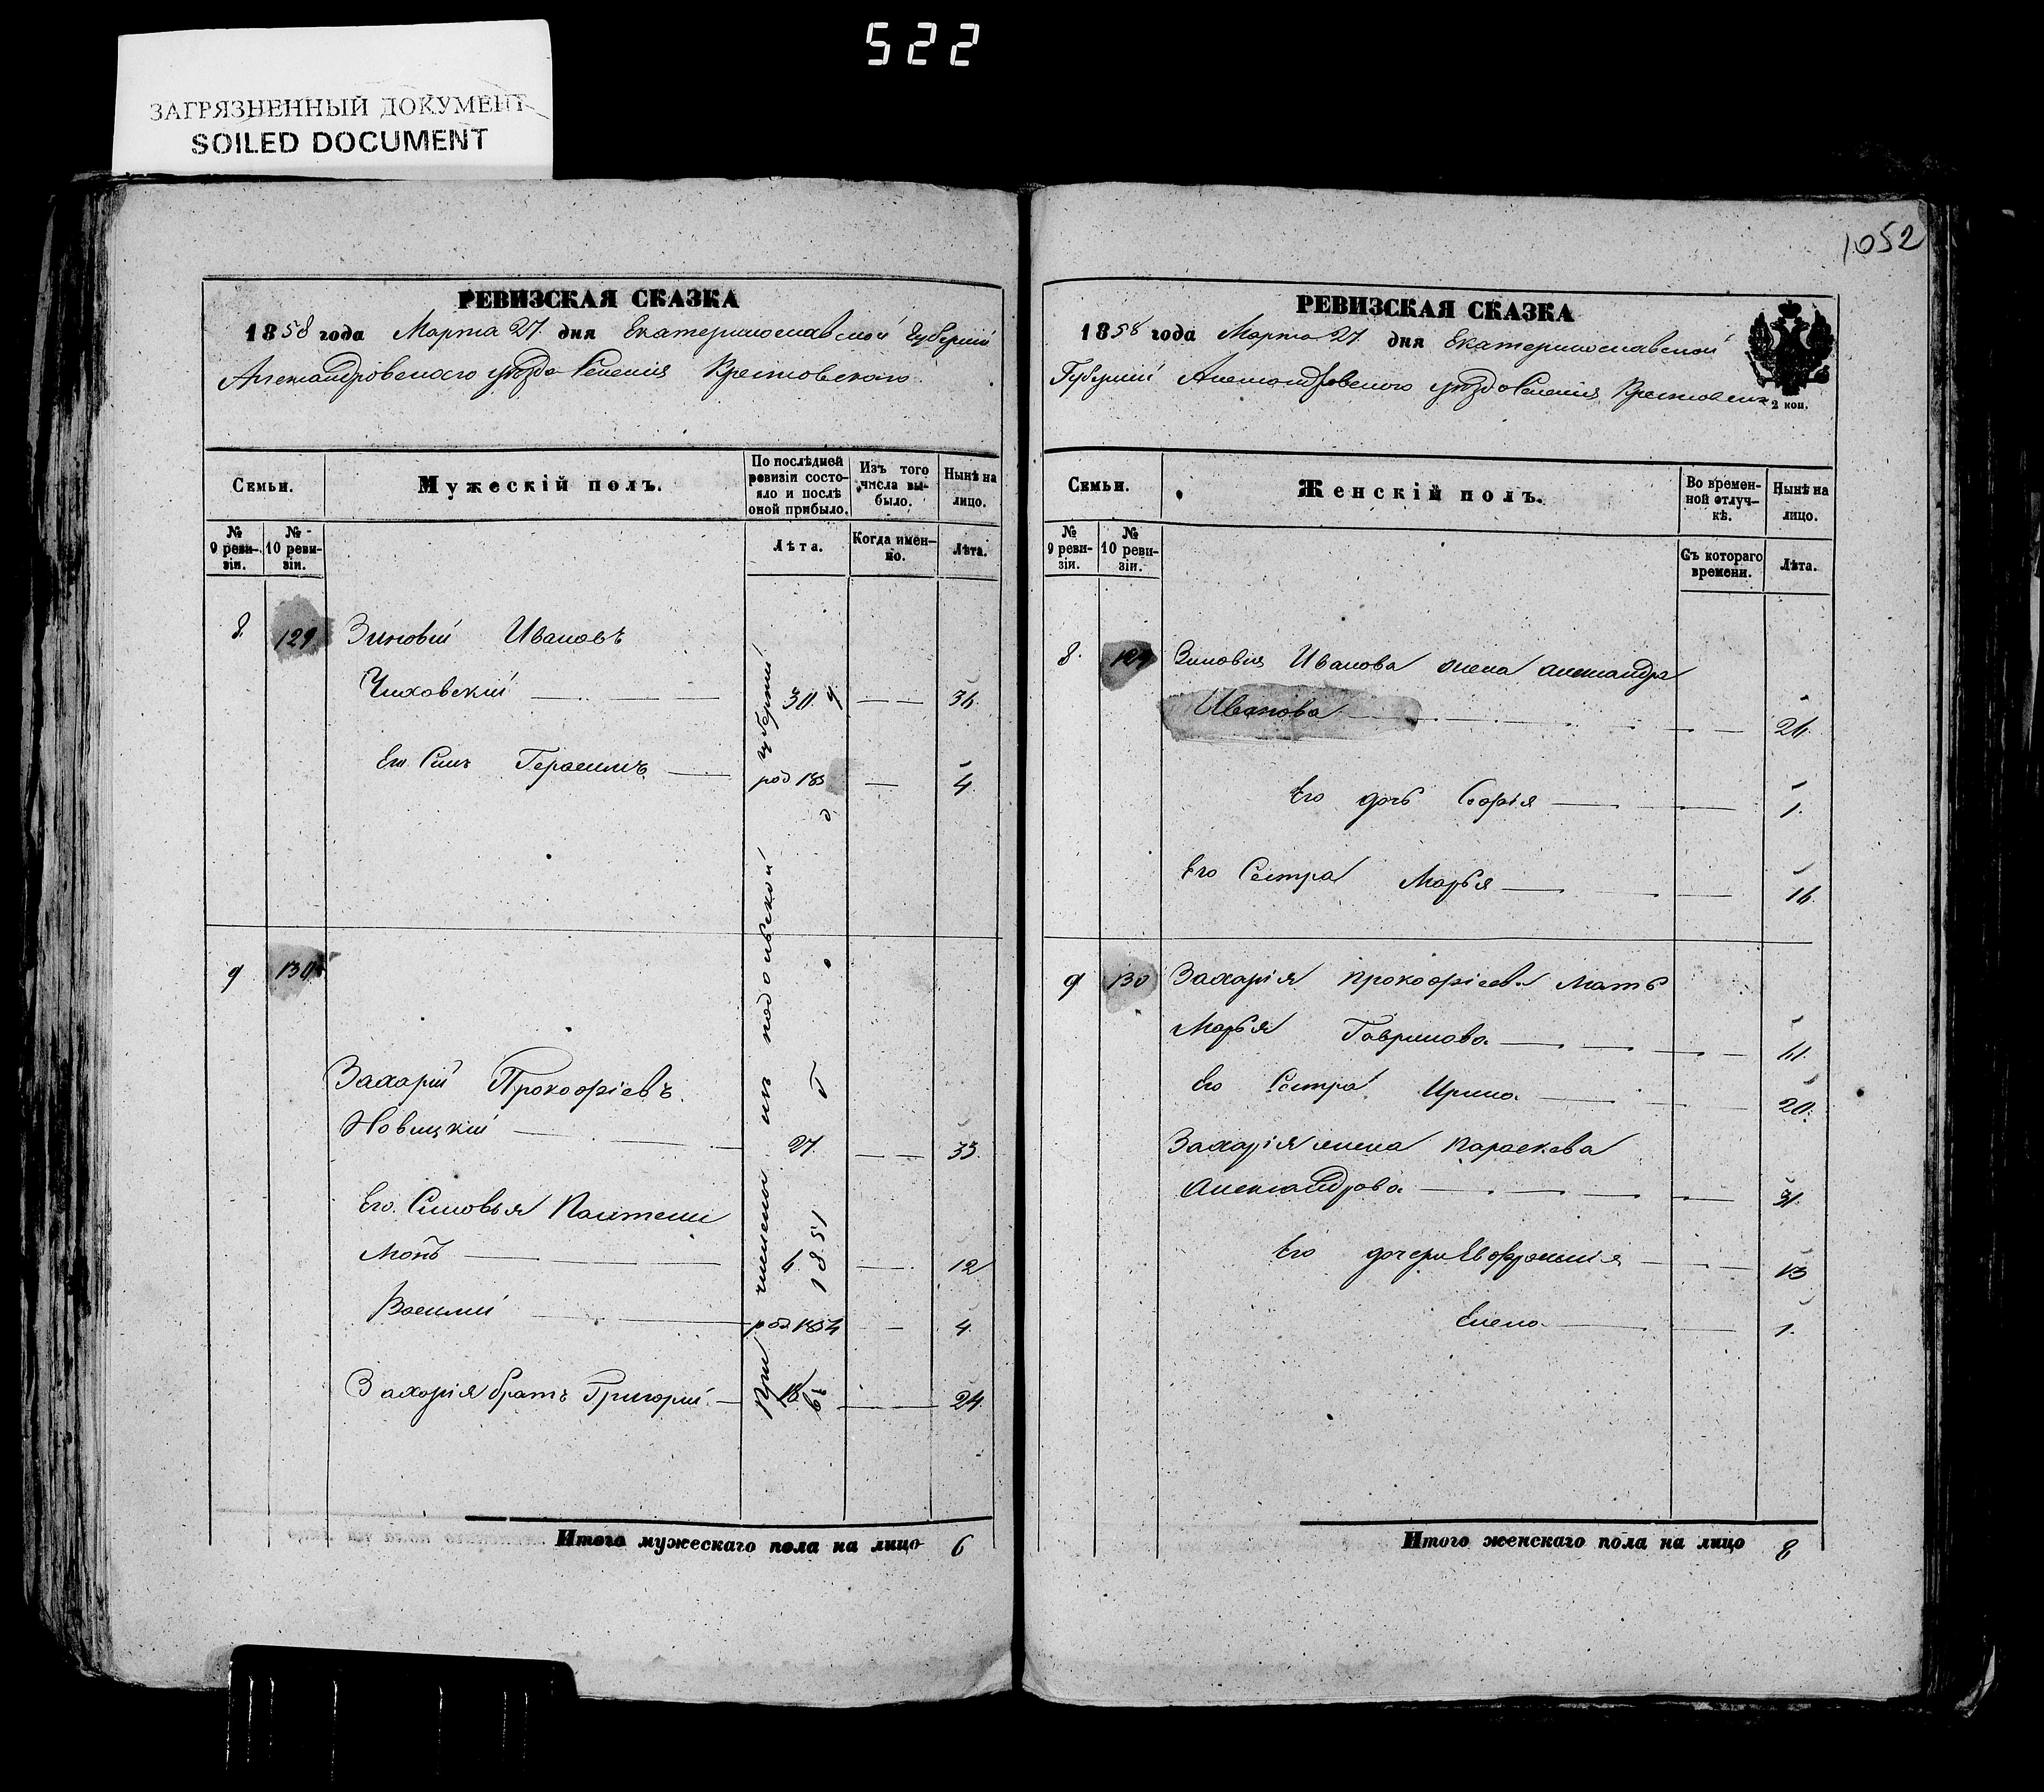 522
ЗАГРЯЗНЕННЫЙ ДОКУМЕНТ
SOILED DOCUMENT
РЕВИЗСКАЯ СКАЗКА
1858 года Марта 27 дня Екатеринославской Губерніи
Александровского уѣзда Селенія Крестовского
Семьи.
Мужескій полъ.
По послѣдней ревизіи состояло и послѣ оной прибыло.
Изъ того числа выбыло.
Нынѣ на лицо.
№ 9 ревизіи.
№ 10 ревизіи.
Лѣта.
Когда именно.
Лѣта.
8. 129 Зиновій Ивановъ
Чиховскій 30 36.
Его Сынъ Герасимъ род 185 4.
9 130
Захарій Прокофіевъ
Новицкій 27. 33
Его Сыновья Пантелимонъ
12
Василій род 1854 4.
Захарія братъ Григорій 18 24.
Причислены изъ подольской губерніи
въ 1851 г
Итого мужескаго пола на лицо 6
1052
РЕВИЗСКАЯ СКАЗКА
1858 года Марта 27 дня Екатеринославской
Губерніи Александровского уѣзда Селенія
2 коп.
Семьи.
Женскій полъ.
Во временной отлучкѣ.
Нынѣ на лицо.
№ 9 ревизіи.
№ 10 ревизіи.
Съ котораго времени.
Лѣта.
8. 129 Зиновія Иванова жена Александра
Иванова 26.
Его дочь Софія 1.
Его Сестра Марья 16.
9 130 Захарія Прокофіева Мать
Марья Гаврилова
Его Сестра Ирина 20.
Захарія жена Параскева
Александрова 31.
Его дочери Евфросинія 13
Елена 1.
Итого женскаго пола на лицо 8